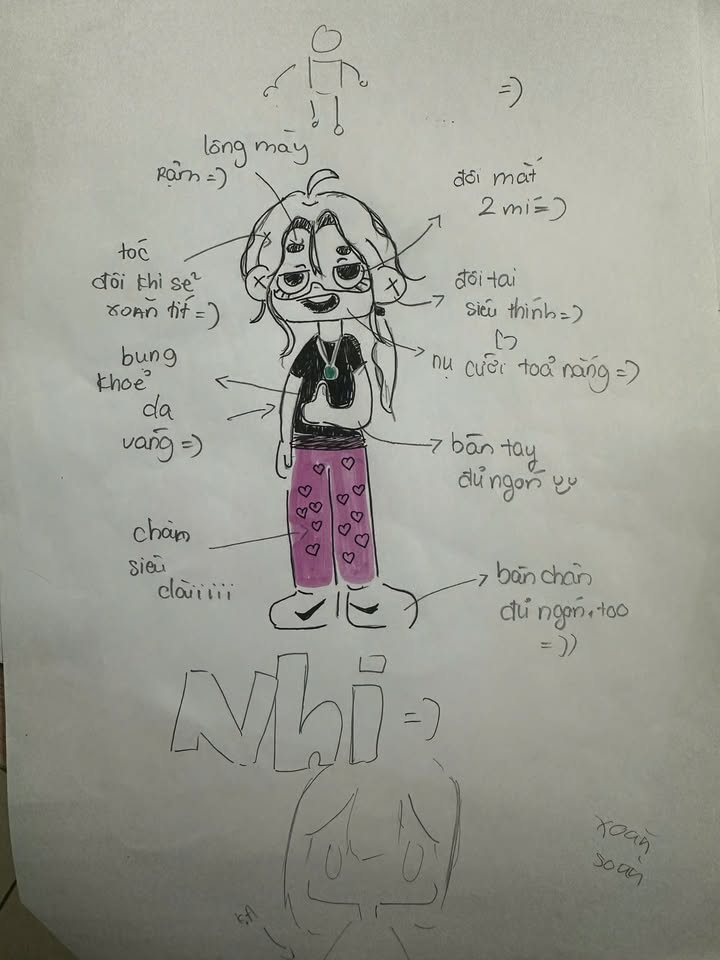 =)
lông mày
rậm =)
đôi mắt
2 mí =)
tóc
đôi khi sẽ
xoăn tít =)
đôi tai
siêu thính =)
nụ cười toả nắng =)
bụng
khoẻ
da
vàng =)
bàn tay
đủ ngón
chân
siêu
dàiiiii
bàn chân
đủ ngón, too
=))
Nhi =)
xoăn
soăn